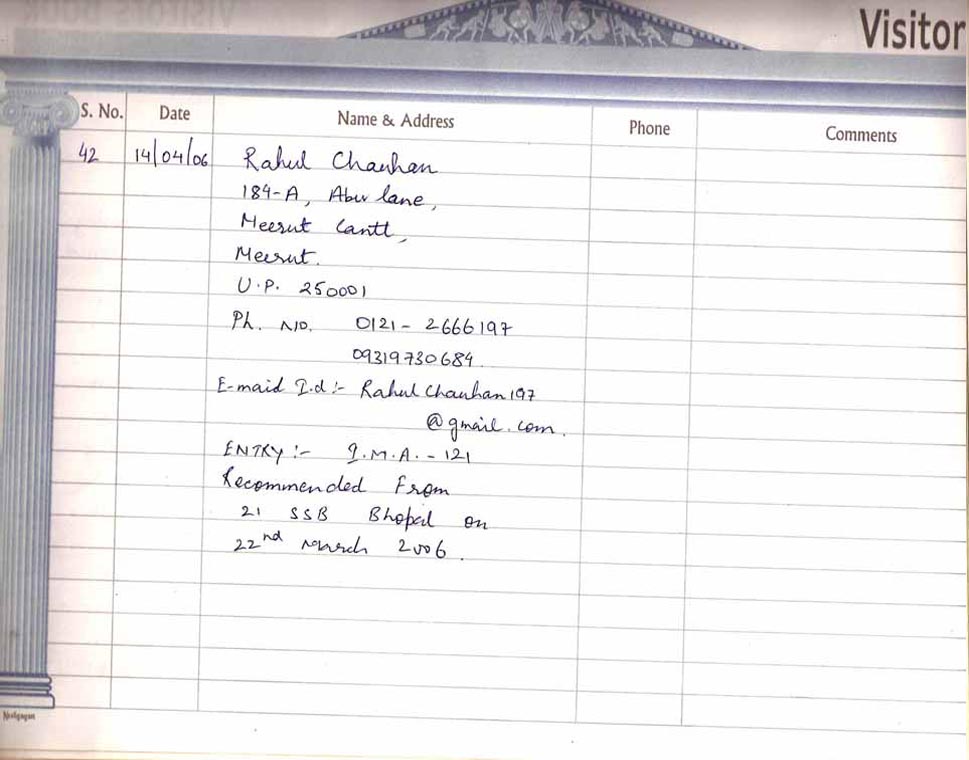 Visitor
S. No. Date Name & Address Phone Comments
42 14/04/06 Rahul Chauhan
184-A, Abu lane,
Meerut Cantt,
Meerut.
U.P. 250001
Ph. NO. 0121- 2666197
09319730684
E-maid I.d :- Rahul Chauhan 197
@gmail.com.
ENTRY :- I.M.A. - 121
Recommended From
21 SSB Bhopal on
22nd March 2006.
Neelgagan